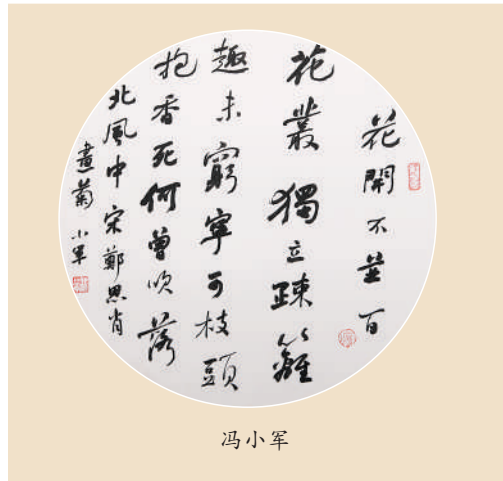 花開不並百
花叢獨立疎籬
趣未窮寧可枝頭
抱香死何曾吹落
北風中宋鄭思肖
畫菊小軍
冯小军